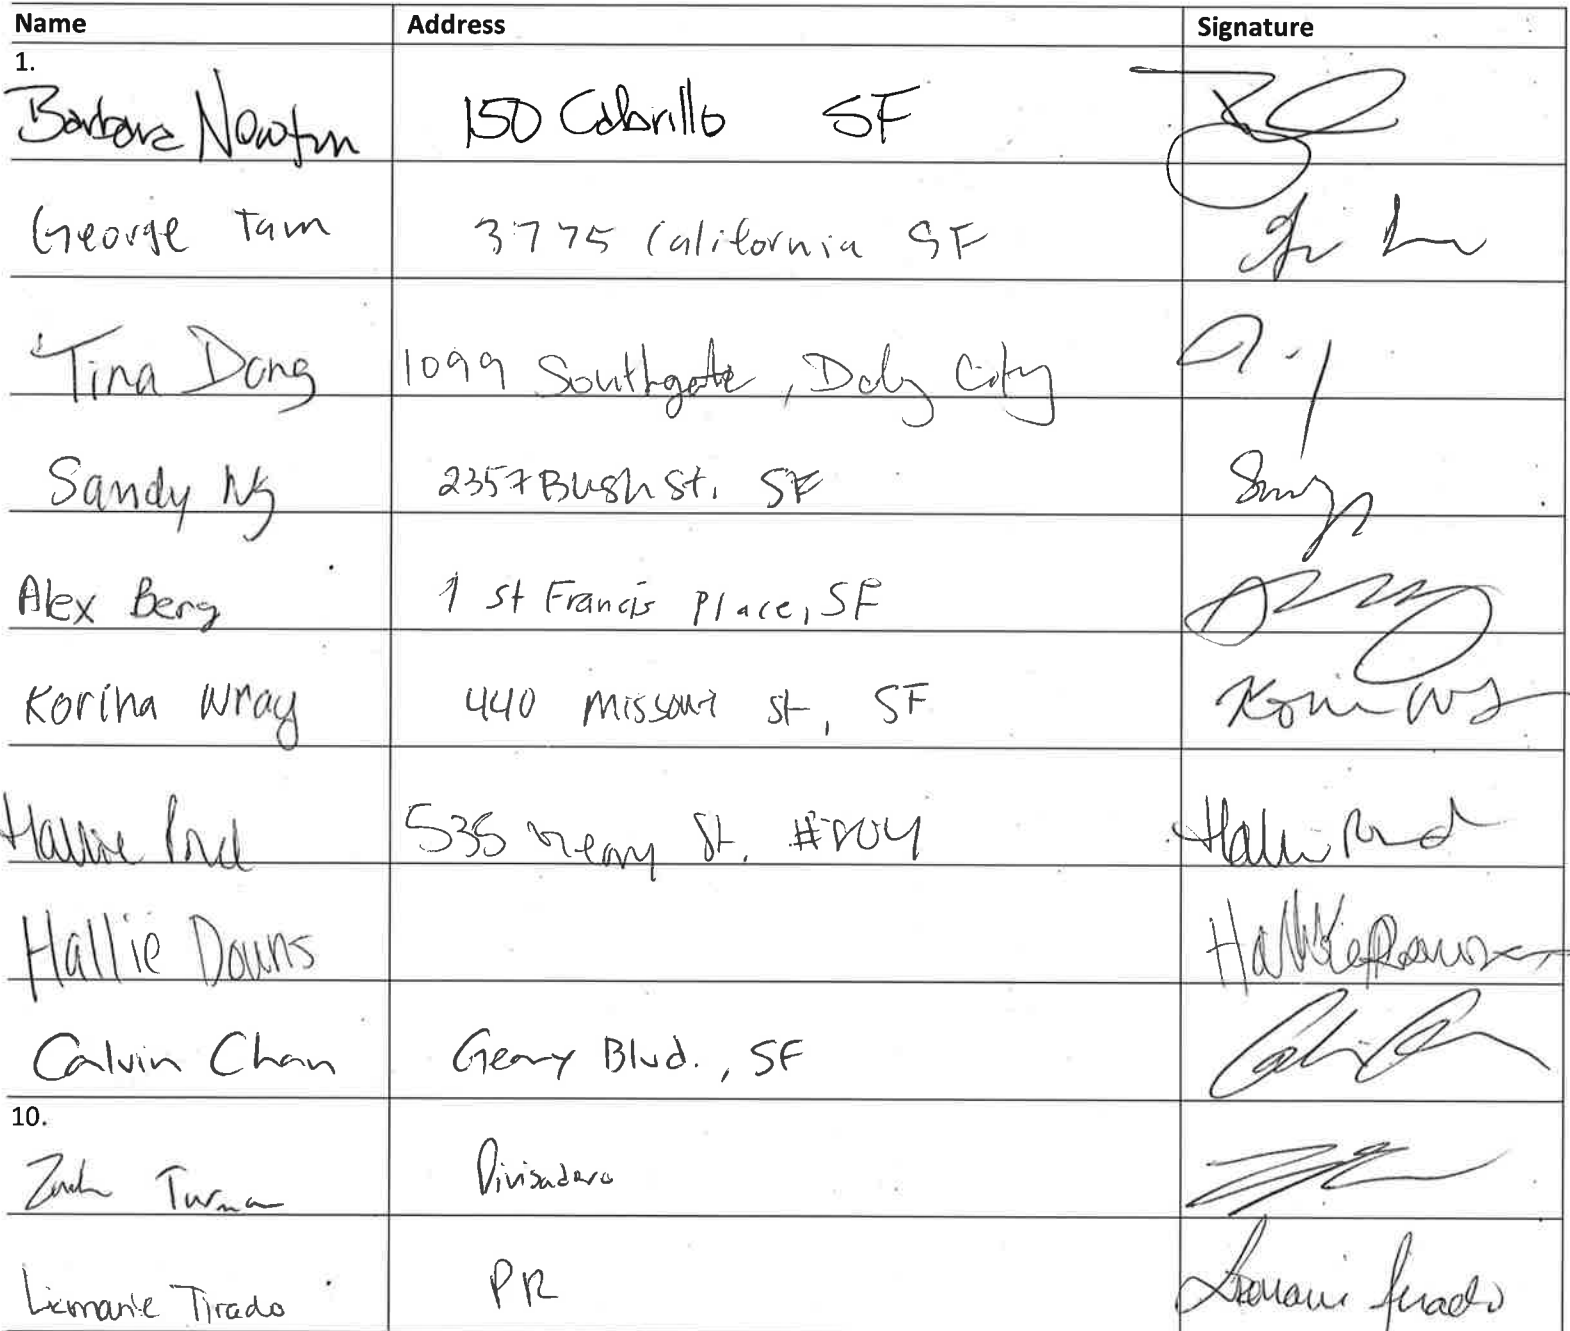 Name Address Signature
1.
Barbara Newton 150 Cabrillo SF
George Tam 3775 California SF
Tina Dong 1099 Southgate, Daly City
Sandy Ng 2357 Bush St. SF
Alex Berg 1 St Francis Place, SF
Korina Wray 440 Missouri St, SF Korina Wray
Hallie 535 Geary St. Hallie
Hallie Downs Hallie Downs
Calvin Chan Geary Blvd., SF
10.
Zach Turman Divisadero
Liamarie Tirado PR Tirado